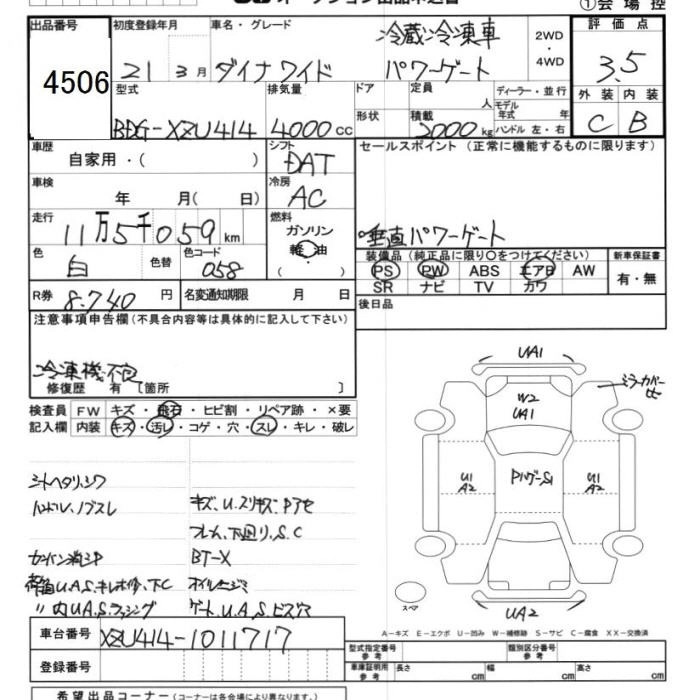 ①会場控
出品番号
4506
初度登録年月
21 3月
車名・グレード
冷蔵冷凍車
ダイナワイド パワーゲート
2WD
・
4WD
評価点
3.5
外装 内装
C B
型式
BDG-XZU414
排気量
4000cc
ドア
形状
定員
人
積載
2000kg
ディーラー・並行
モデル
年式 年
ハンドル 左・右
車歴
自家用・( )
シフト
DAT
車検
年 月( 日)
冷房
AC
走行
11万5千059km
燃料
ガソリン
軽油
( ・ )
色
白
色替
色コード
058
R券
8,740円
名変通知期限 月 日
セールスポイント (正常に機能するものに限ります)
垂直パワーゲート
装備品 (純正品に限り○をつけてください)
新車保証書
PS PW ABS エアB AW
SR ナビ TV カワ
有・無
後日品
注意事項申告欄(不具合内容等は具体的に記入して下さい)
冷凍機不良
修復歴 有 〔箇所 〕
検査員
記入欄
FW キズ・飛石・ヒビ割・リペア跡・×要
内装 キズ・汚レ・コゲ・穴・スレ・キレ・破レ
シートヘタリ、シワ
ハンドル、ノブスレ
キズ、U、スリキズ
フレーム、下回り、S、C
BT-X
UA1
W2
UA1
ミラーカバー
ヒビ
U1
A2
U1
A2
UA2
スペア
A-キズ E-エクボ U-凹み W-補修跡 S-サビ C-腐食 XX-交換済
車台番号
XZU414-1011717
登録番号
型式指定番号
参考
類別区分番号
参考
車庫証明用
参考
長さ cm
幅 cm
高さ cm
希望出品コーナー (コーナーは各会場により異なります。)